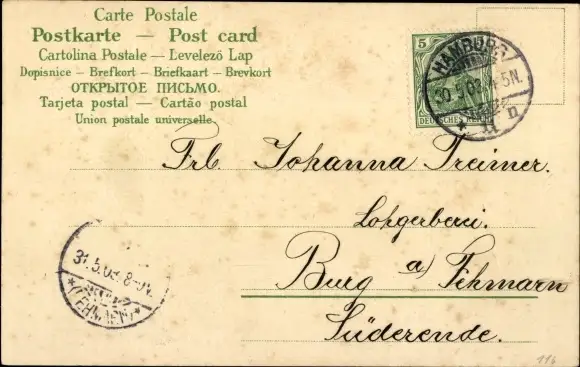 Carte Postale
Postkarte — Post card
Cartolina Postale — Levelező Lap
Dopisnice — Brefkort — Briefkaart — Brevkort
ОТКРЫТОЕ ПИСЬМО.
Tarjeta postal — Cartão postal
Union postale universelle.
5
DEUTSCHES REICH
HAMBURG
30.5.03. 4-5N.
* 11 n
Frl. Johanna Treimer.
Lohgerberei.
Burg a/ Fehmarn
Süderende.
31.5.03. 8-9V.
*(FEHMARN)*
116